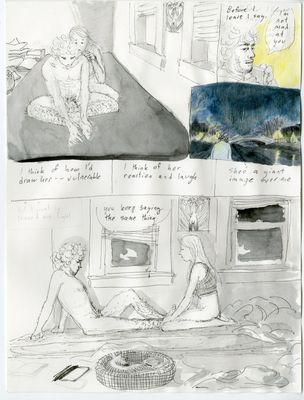 Before I
leave I say,
I'm
not
mad
at
you
I think of how I'd
draw her -- vulnerable
I think of her
reaction and laugh
She's a giant
image over me
you keep saying
the same thing